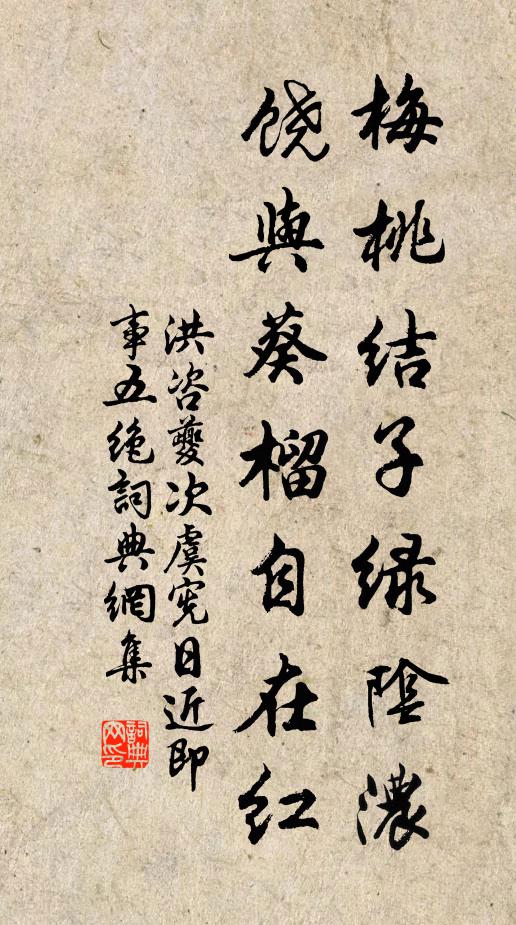 梅桃结子绿阴浓
饶与葵榴自在红
洪咨夔次虞宪日近即
事五绝词典網集
詞典